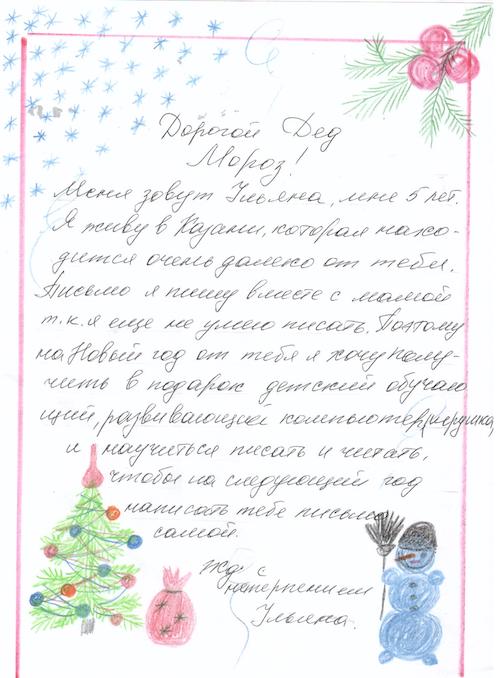 Дорогой Дед
Мороз!
Меня зовут Ульяна, мне 5 лет.
Я живу в Казани, которая нахо-
дится очень далеко от тебя.
Письмо я пишу вместе с мамой
т.к. я еще не умею писать. Поэтому
на Новый год от тебя я хочу полу-
чить в подарок детский обучаю
щий, развивающий компьютер
и научиться писать и читать,
чтобы на следующий год
написать тебе письмо
самой.
Жду с
нетерпением
Ульяна.